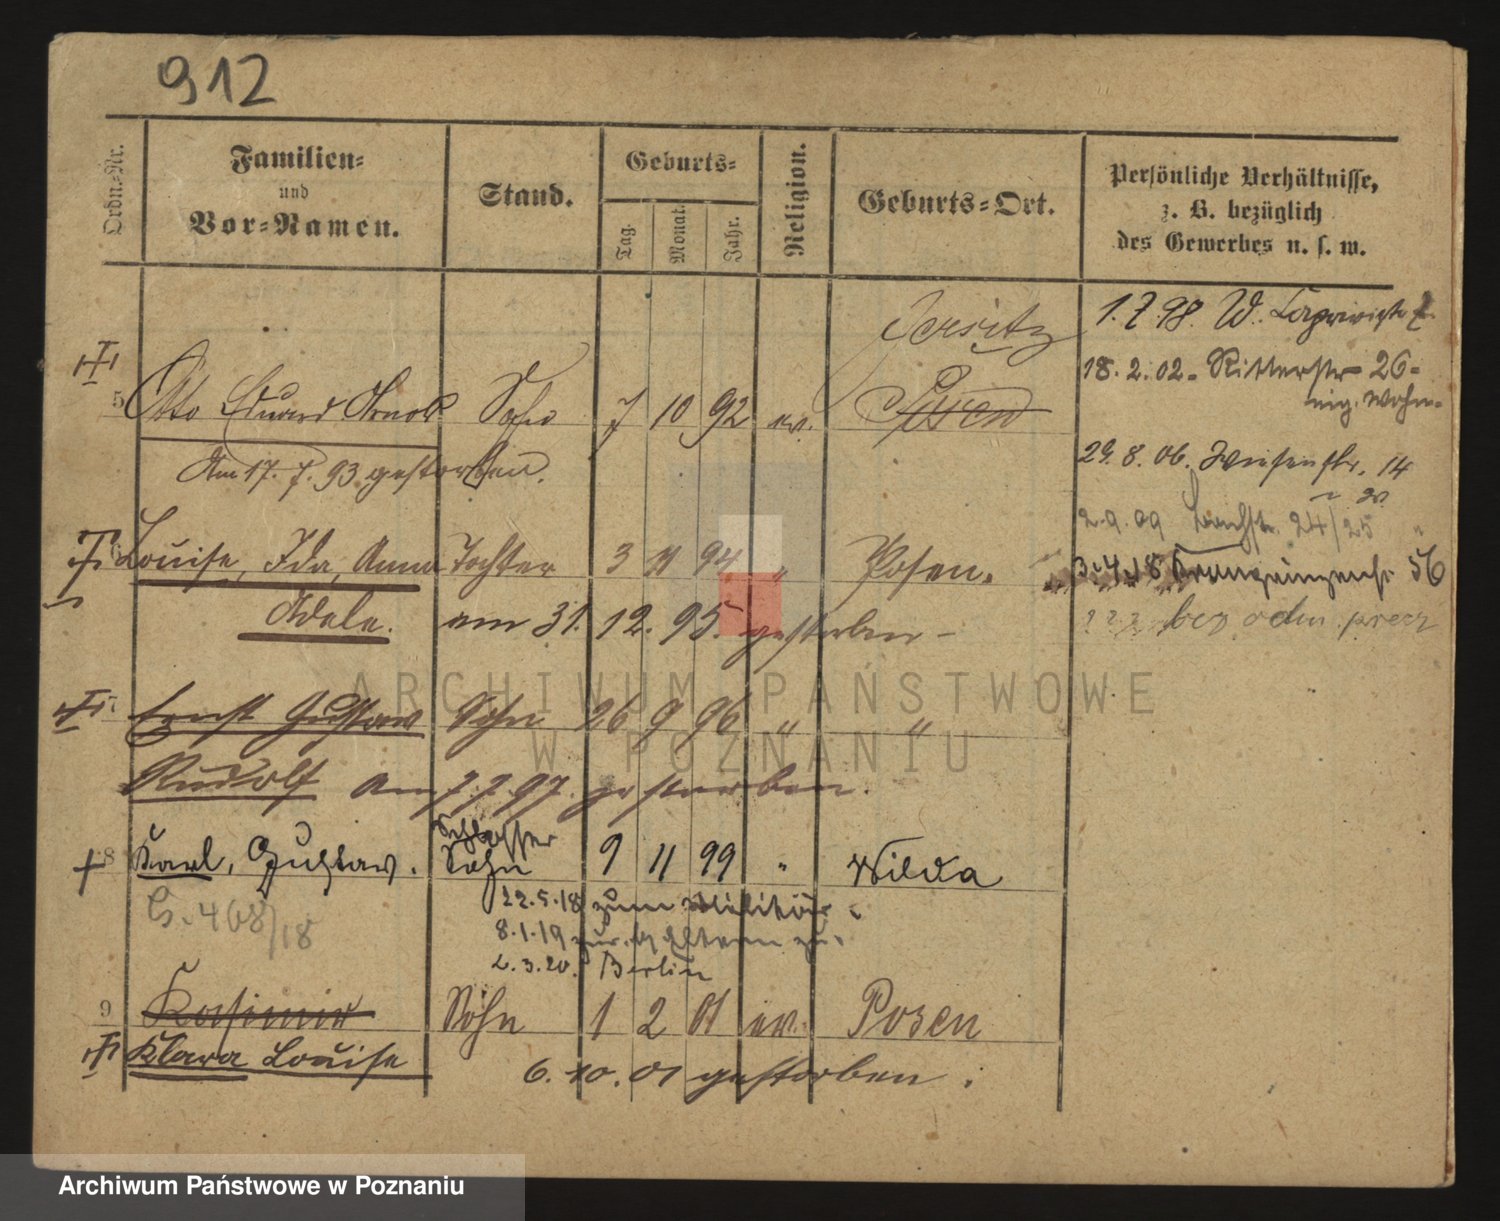 912
Ordn.-Nr.
Familien-
und
Vor-Namen.
Stand.
Geburts-
Tag.
Monat.
Jahr.
Religion.
Geburts-Ort.
Persönliche Verhältnisse,
z. B. bezüglich
des Gewerbes u. s. w.
Jersitz
1.7.98. W.
18.2.02. Ritterstr. 26.
5 Otto Eduard Arnold Sohn 7 10 92 ev. Posen
Wohn.
Am 17. 7. 93 gestorben.
29.8.06. Wiesenstr. 14
2.9.09 Bachstr. 24/25
Louise, Ida, Anna Tochter 3 11 94 " Posen.
56
Adele. am 31. 12. 95. gestorben
bez odm.
Ernst Gustav Sohn 26 9 96 " "
Rudolf am 7.7.97. gestorben.
Schlosser
8 Karl, Gustav. Sohn 9 11 99 " Wilda
22.5.18 zum Militär
468/18
8.1.19 Eltern
2.3.20. Berlin
9 Kasimir Sohn 1 2 01 ev. Posen
Klara Louise
6.10.01 gestorben.
ARCHIWUM PAŃSTWOWE
W POZNANIU
Archiwum Państwowe w Poznaniu